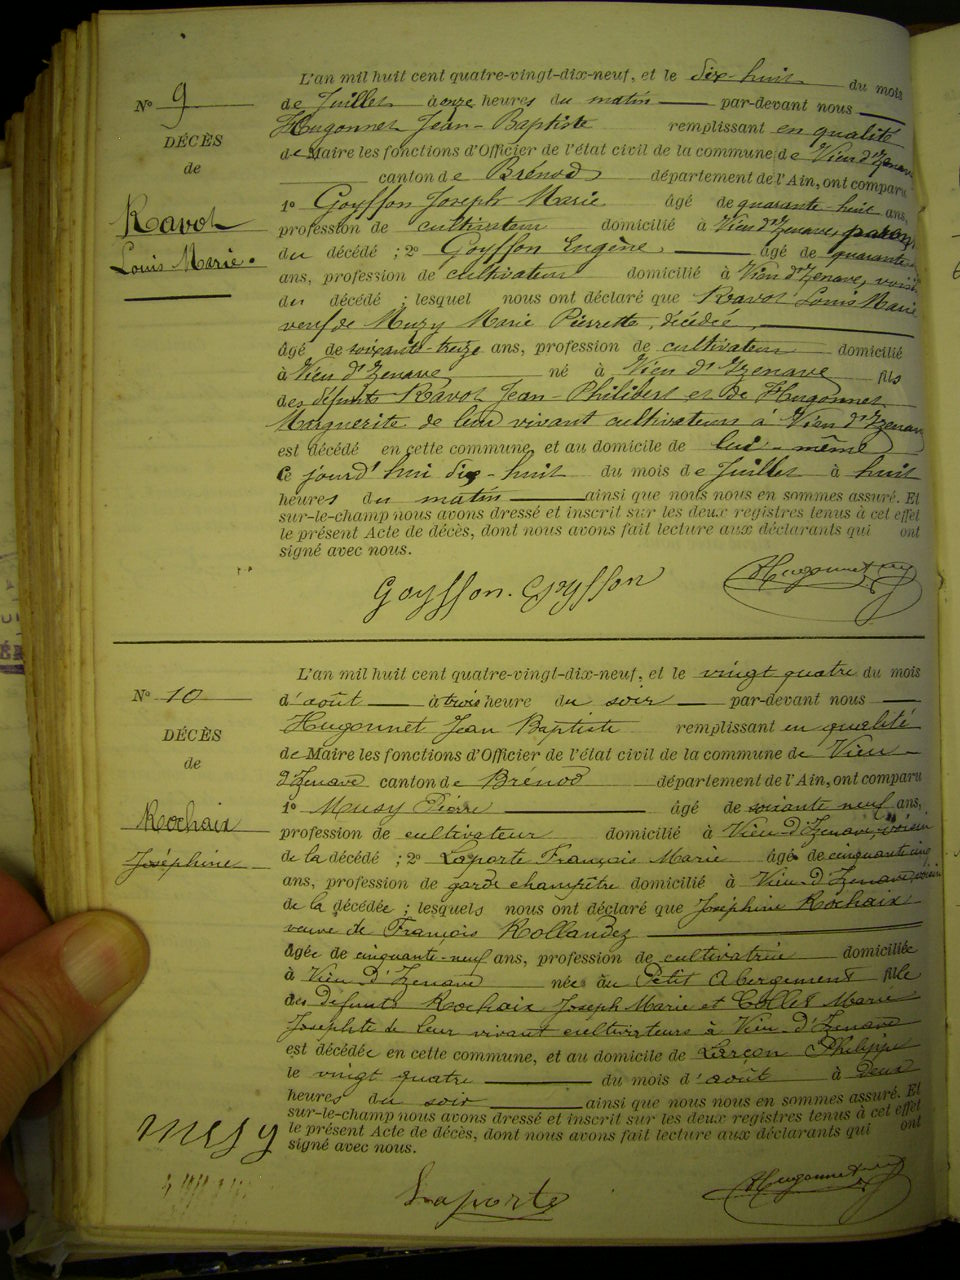 L'an mil huit cent quatre-vingt-dix-neuf, et le dix-huit du mois
N° 9
de Juillet à onze heures du matin par-devant nous
Hugonnet Jean-Baptiste remplissant en qualité
DÉCÈS
de Maire les fonctions d'Officier de l'état civil de la commune de Vieu d'Izenave
de
canton de Brénod département de l'Ain, ont comparu
Ravot
Louis Marie.
1° Goyffon Joseph Marie âgé de quarante-huit ans,
profession de cultivateur domicilié à Vieu d'Izenave, parent
du décédé ; 2° Goyffon Eugène, âgé de quarante
ans, profession de cultivateur domicilié à Vieu d'Izenave, voisin
du décédé ; lesquel nous ont déclaré que Ravot Louis Marie
veuf de Muzy Marie Pierrette, décédée,
âgé de soixante-treize ans, profession de cultivateur domicilié
à Vieu d'Izenave né à Vieu d'Izenave fils
des défunts Ravot Jean-Philibert et de Hugonnet
Marguerite de leur vivant cultivateurs à Vieu d'Izenave
est décédé en cette commune, et au domicile de lui-même
Ce jourd'hui dix-huit du mois de Juillet à huit
heures du matin ainsi que nous nous en sommes assuré. Et
sur-le-champ nous avons dressé et inscrit sur les deux registres tenus à cet effet
le présent Acte de décès, dont nous avons fait lecture aux déclarants qui ont
signé avec nous.
Goyffon. Goyffon Hugonnet
L'an mil huit cent quatre-vingt-dix-neuf, et le vingt quatre du mois
N° 10
d'août à trois heure du soir par-devant nous
Hugonnet Jean Baptiste remplissant en qualité
DÉCÈS
de Maire les fonctions d'Officier de l'état civil de la commune de Vieu
de
d'Izenave canton de Brénod département de l'Ain, ont comparu
Rochaix
Joséphine
1° Musy Pierre âgé de soixante neuf ans,
profession de cultivateur domicilié à Vieu-D'Izenave, voisin
de la décédé ; 2° Laporte François Marie âgé de cinquante cinq
ans, profession de garde champêtre domicilié à Vieu-D'Izenave, voisin
de la décédée ; lesquels nous ont déclaré que Joséphine Rochaix
veuve de François Rollandez
âgée de cinquante-neuf ans, profession de cultivatrice domiciliée
à Vieu-D'Izenave née au Petit Abergement fille
des Défunts Rochaix Joseph Marie et Collet Marie
Josephte de leur vivant cultivateurs à Vieu-D'Izenave
est décédée en cette commune, et au domicile de Larçon Philippe
le vingt quatre du mois d'août à Deux
heures du soir ainsi que nous nous en sommes assuré. Et
sur-le-champ nous avons dressé et inscrit sur les deux registres tenus à cet effet
le présent Acte de décès, dont nous avons fait lecture aux déclarants qui ont
signé avec nous.
Mesy
Laporte Hugonnet